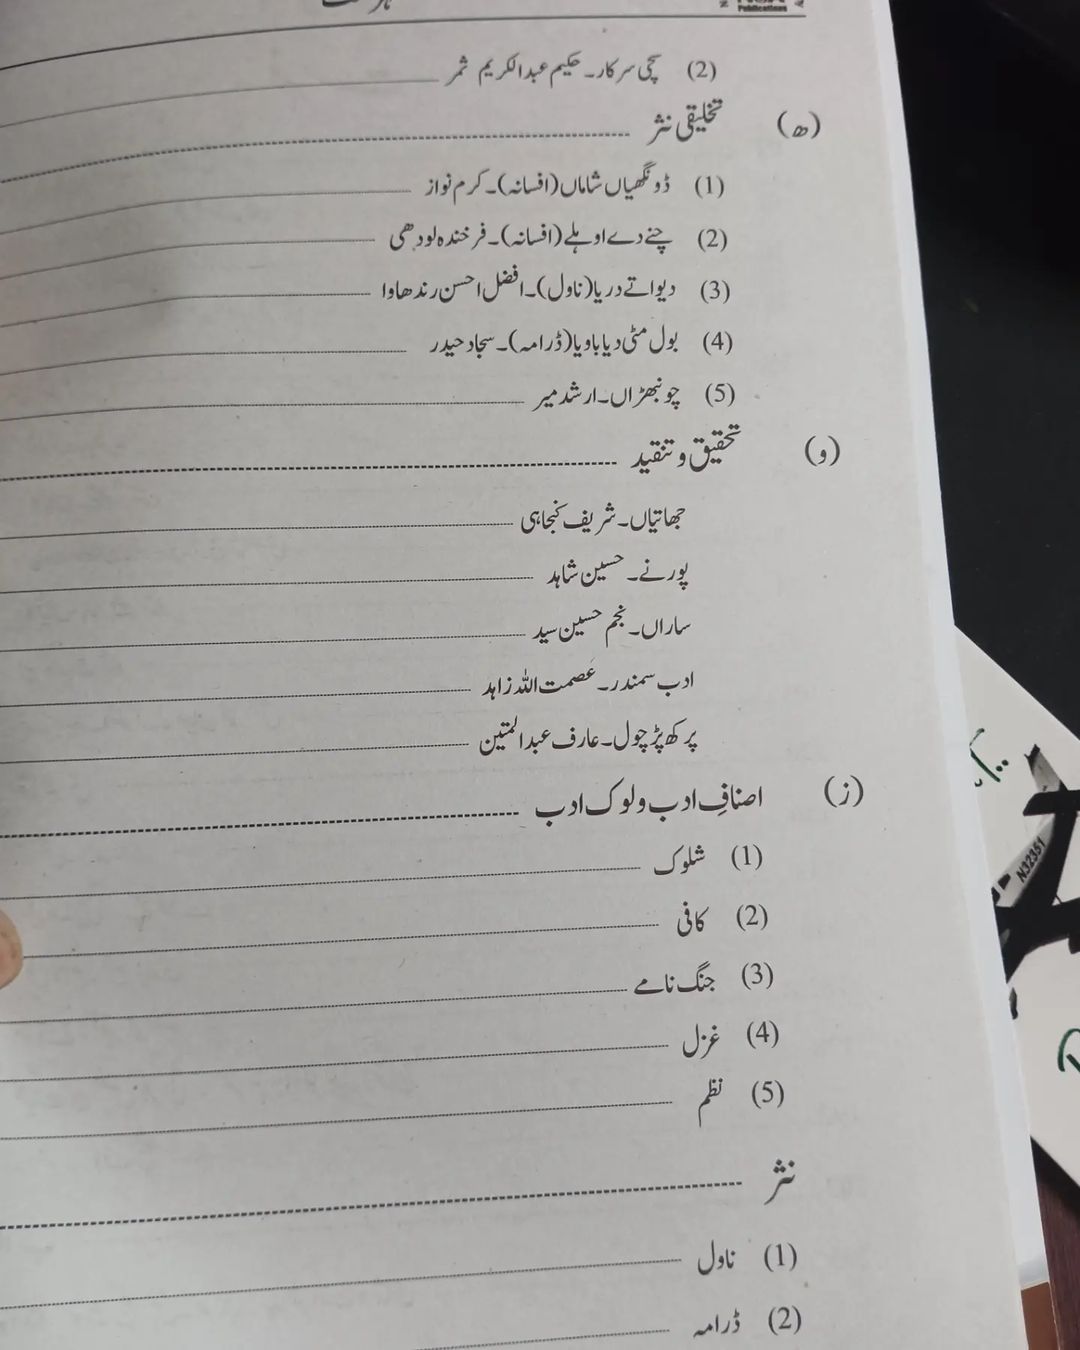 Publications
(2) سچی سرکار۔ حکیم عبدالکریم ثمر
(ھ) تخلیقی نثر
(1) ڈونگھیاں شاماں (افسانہ)۔ کرم نواز
(2) چنے دے اوہلے (افسانہ)۔ فرخندہ لودھی
(3) دیوا تے دریا (ناول)۔ افضل احسن رندھاوا
(4) بول مٹی دیا باویا (ڈرامہ)۔ سجاد حیدر
(5) چونبھڑاں۔ ارشد میر
(و) تحقیق و تنقید
جھاتیاں۔ شریف کنجاہی
پورنے۔ حسین شاہد
ساراں۔ نجم حسین سید
ادب سمندر۔ عصمت اللہ زاہد
پرکھ پڑچول۔ عارف عبدالمتین
(ز) اصنافِ ادب و لوک ادب
(1) شلوک
(2) کافی
(3) جنگ نامے
(4) غزل
(5) نظم
نثر
(1) ناول
(2) ڈرامہ
N32351